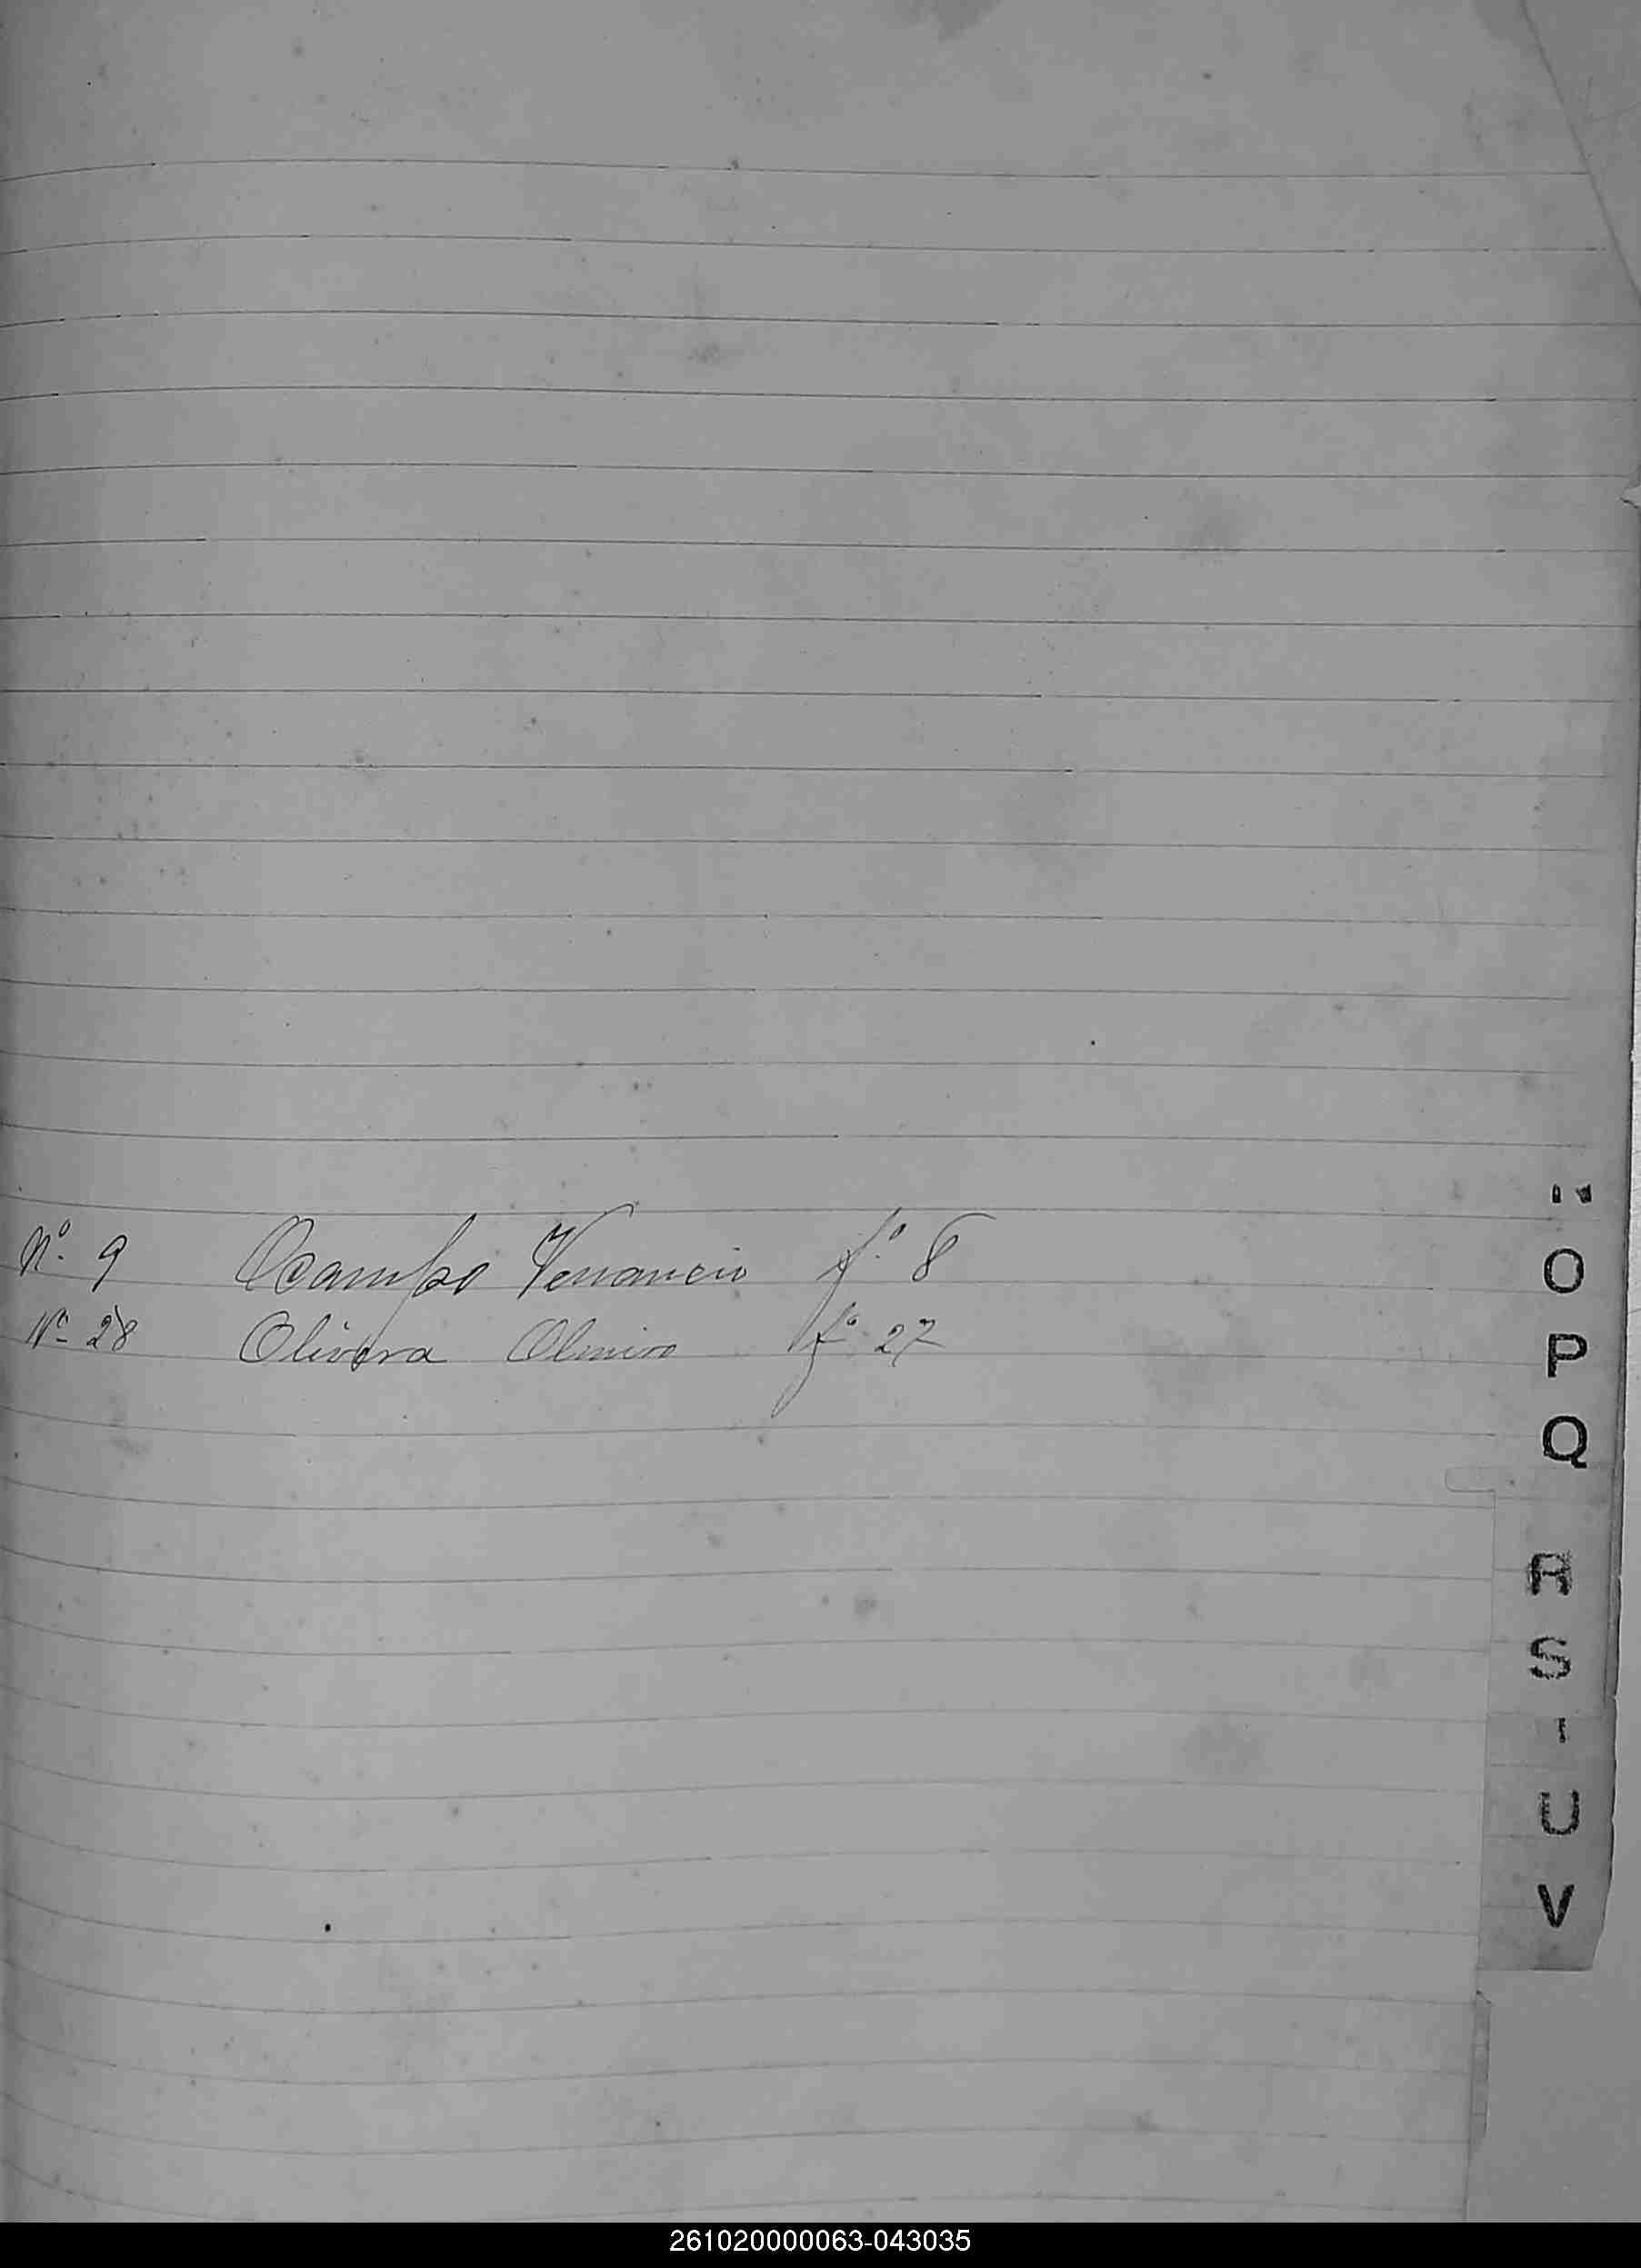 Nº. 9 Ocampo Venancio fº. 8
Nº 28 Olivera Olmiro fº 27
Ñ
O
P
Q
R
S
T
U
V
261020000063-043035